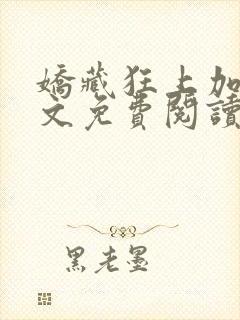 嬌藏狂上加
文免費閱讀
黑老墨